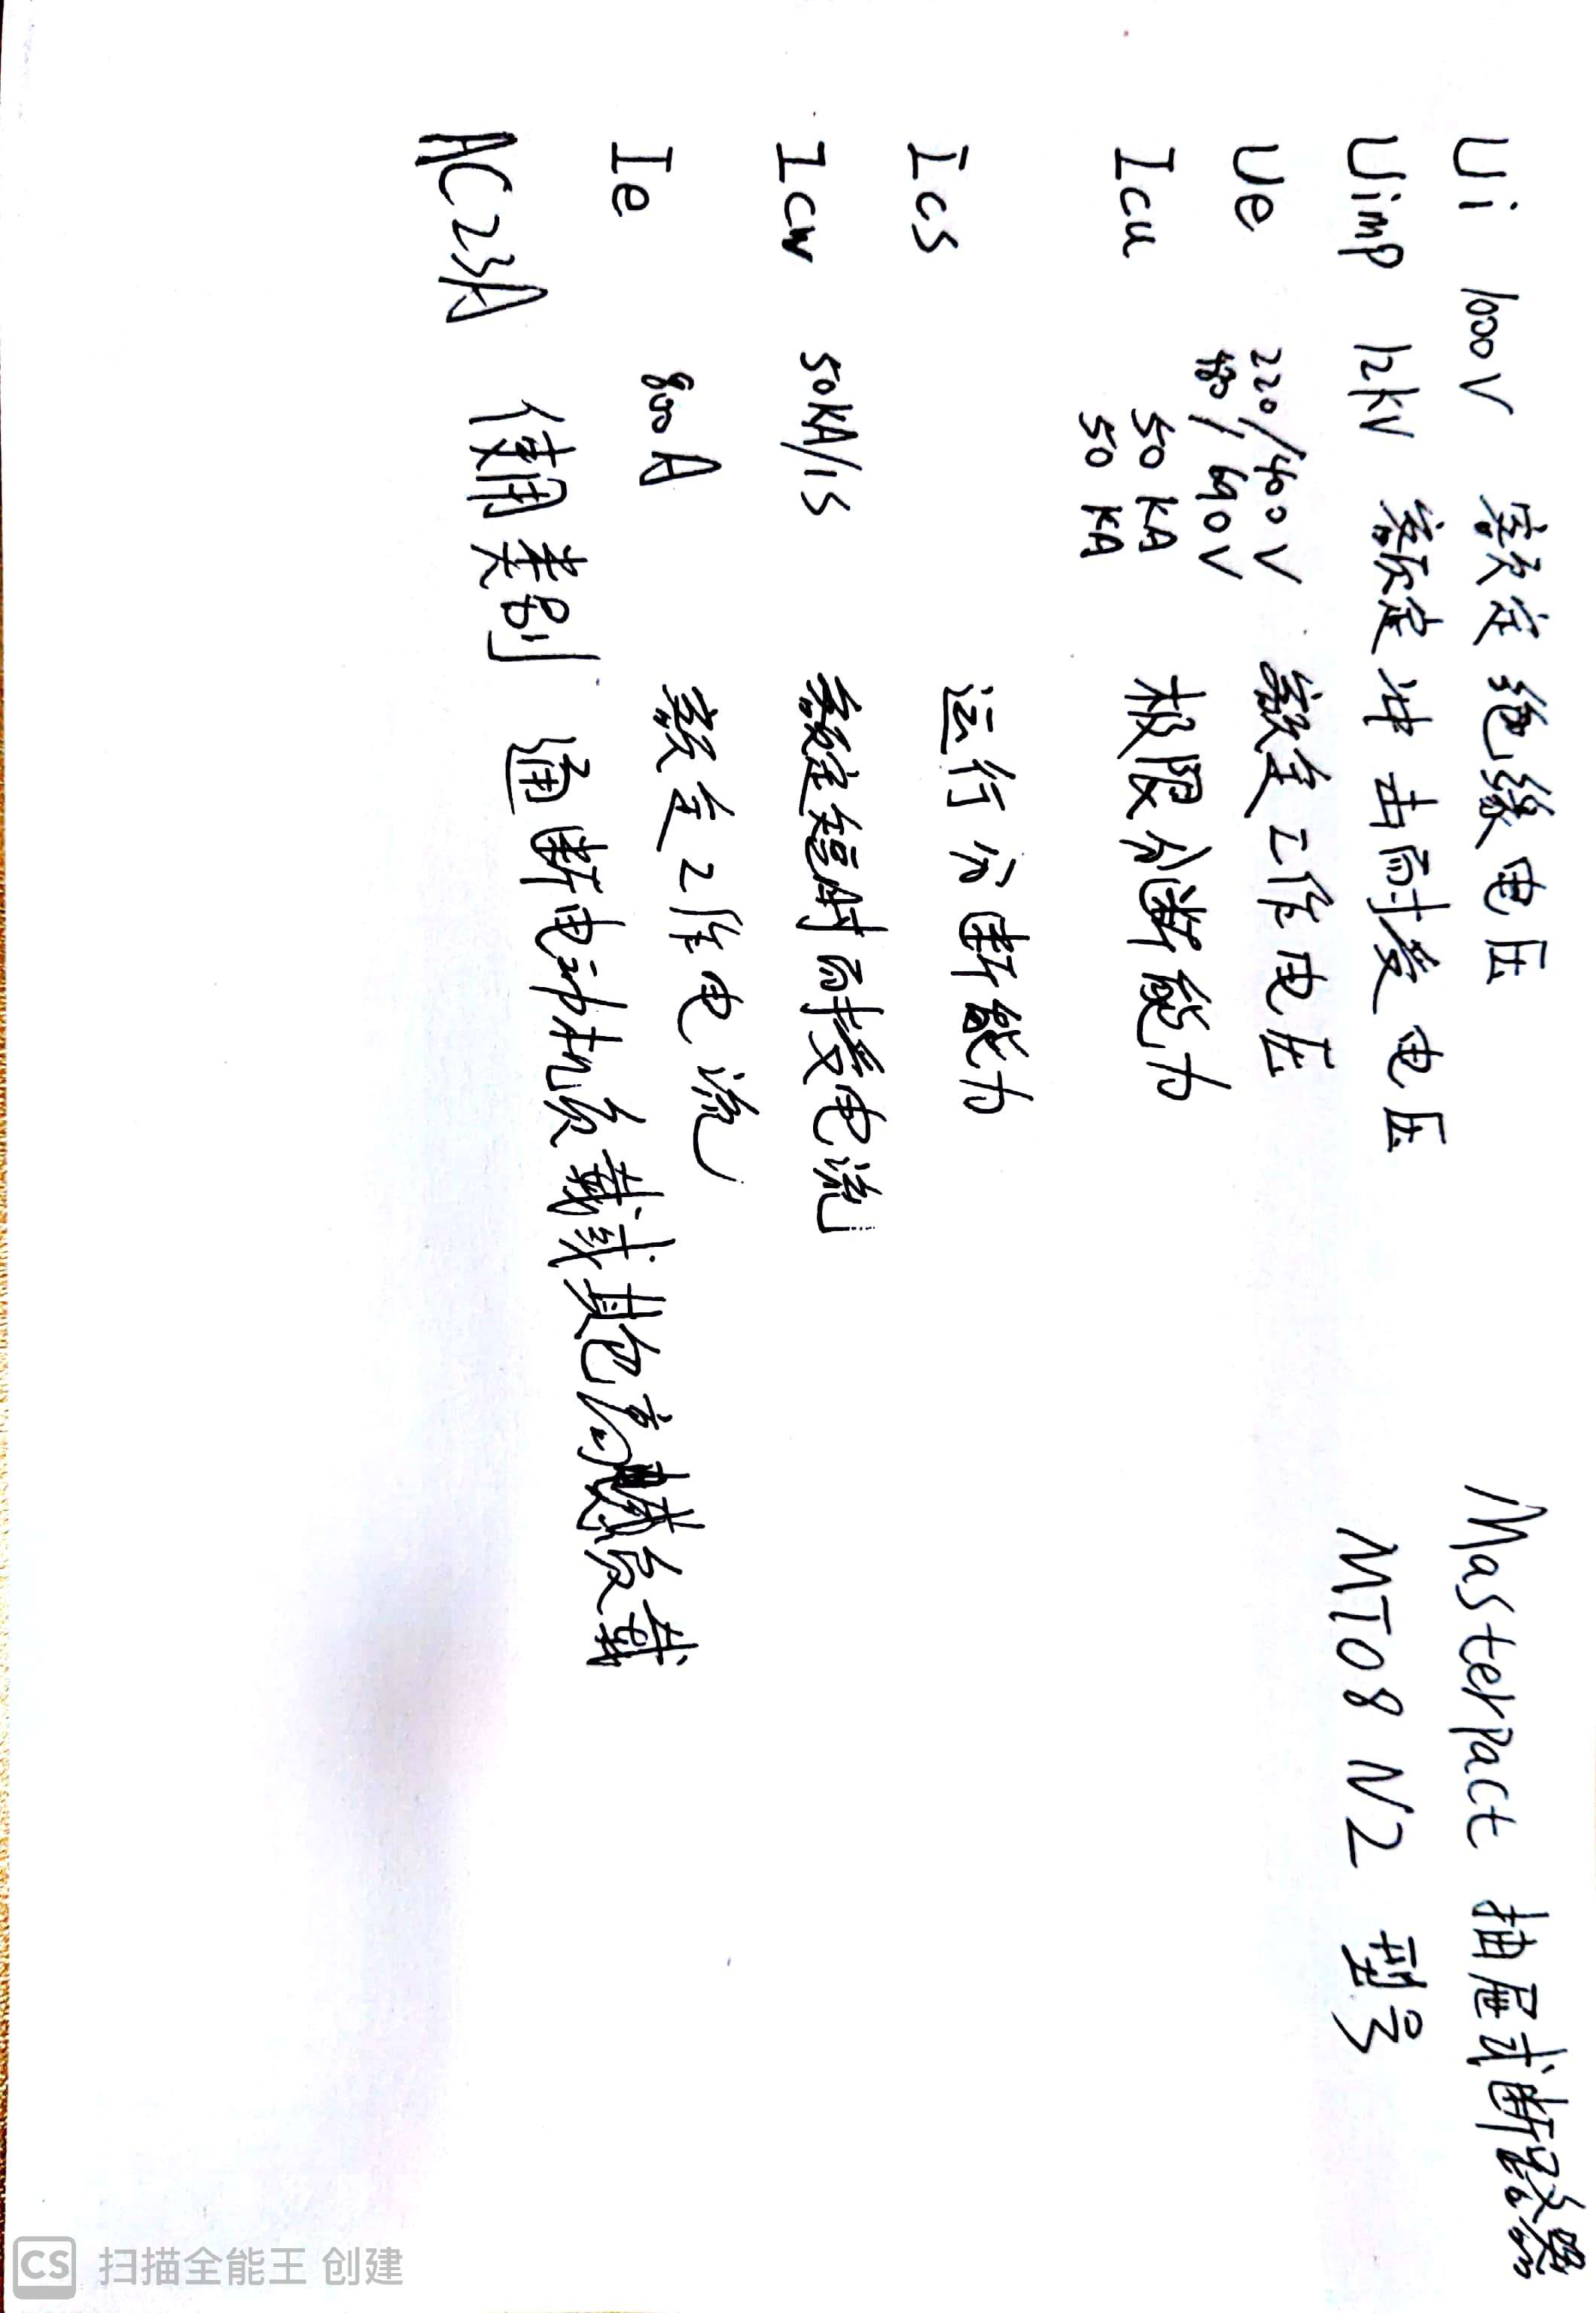 Ui 1000V 额定绝缘电压
Masterpact 抽屉式断路器
Uimp 12kV 额定冲击耐受电压
MT08 N2 型号
Ue 220/400V 额定工作电压
480/690V
Icu 50KA 极限分断能力
50 KA
Ics 运行分断能力
Icw 50KA/1S 额定短时耐受电流
Ie 800A 额定工作电流
AC23A 使用类别 通断电动机负载或其他高感负载
CS 扫描全能王 创建